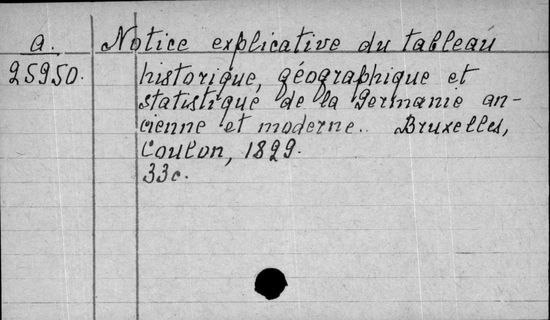 a. Notice explicative du tableau
25950. historique, géographique et
statistique de la Germanie an-
cienne et moderne. Bruxelles,
Coulon, 1829.
33c.